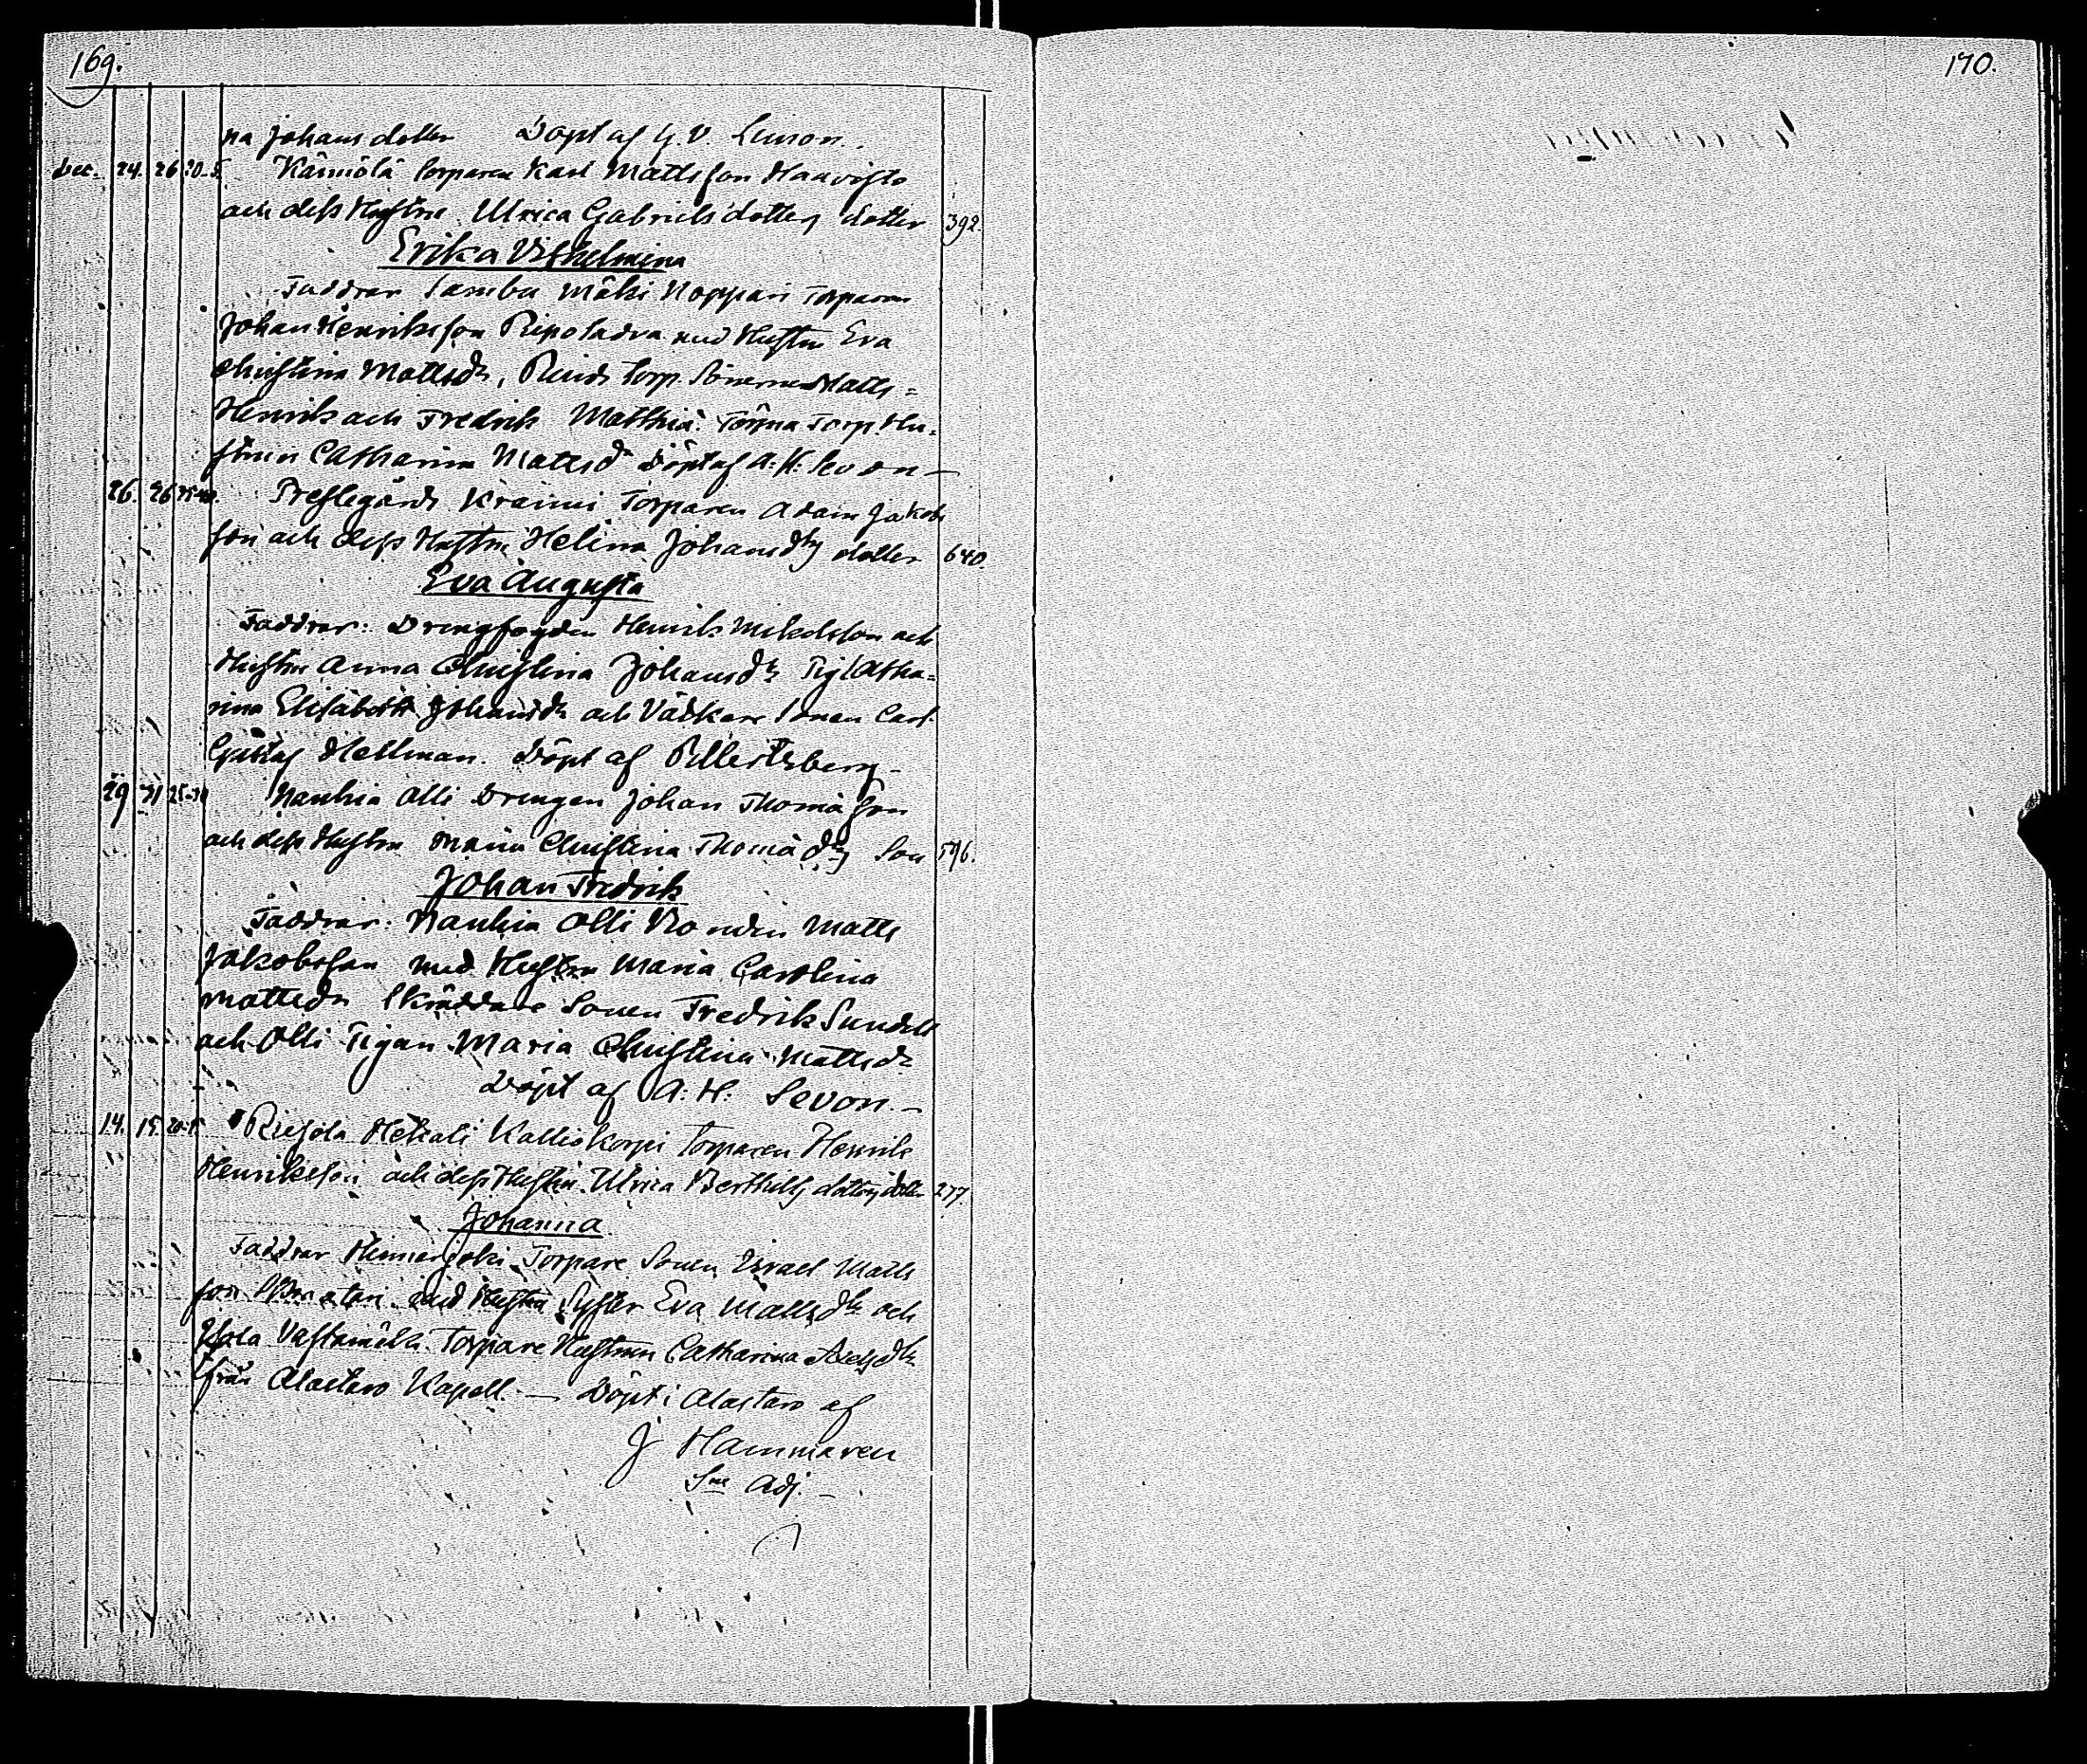 169.
na Johans dotter Döpt af G. V. Lenson.
Dec. 24. 26 20-5 Kännölä Torparen Karl Mattsson Haavisto
och dess Hustru Ulrica Gabriels dotters dotter 392.
Erika Vilhelmina
Faddrar mäki Noppari Torparen
Johan Henriksson med Hustru Eva
Christina Mattsdr, Torp. Sönerne Matts
Henrik och Fredrik Matthiä. Torp. Hu=
strun Catharina Mattsdr Döpt af A: H: Sevon—
26. 26 Prestegårds Torparen Adam Jakobs
son och dess Hustru Helina Johansdrs dotter 640.
Eva Augusta
Faddrar: Drengfogden Henrik Mikelsson och
Hustru Anna Christina Johansdr Pig Catha=
rina Elisabeth Johansdr och sonen Carl
Gustaf Hellman. Döpt af
29 31 25-30 Nauhia Olli Drengen Johan Thomasson
och dess Hustru Maria Christina Thomädrs Son 596.
Johan Fredrik
Faddrar: Nauhia Olli Bonden Matts
Jakobsson med Hustru Maria Carolina
Mattsdr Skräddare Sonen Fredrik Sundell
och Olli Pigan Maria Christina Mattsdr
Döpt af A: H: Sevon.—
14. 15. Hekali Kalliokorpi Torparen Henrik
Henriksson och dess Hustru Ulrica Berthils dotters dotter 277.
Johanna
Faddrar Torpare Sonen Israel Matts
son med Syster Eva Mattsdr och
Torpare Hustrun Catharina
ifrån Alastaro Kapell.— Döpt i Alastaro af
J Hammaren
Sne Adj.—
170.